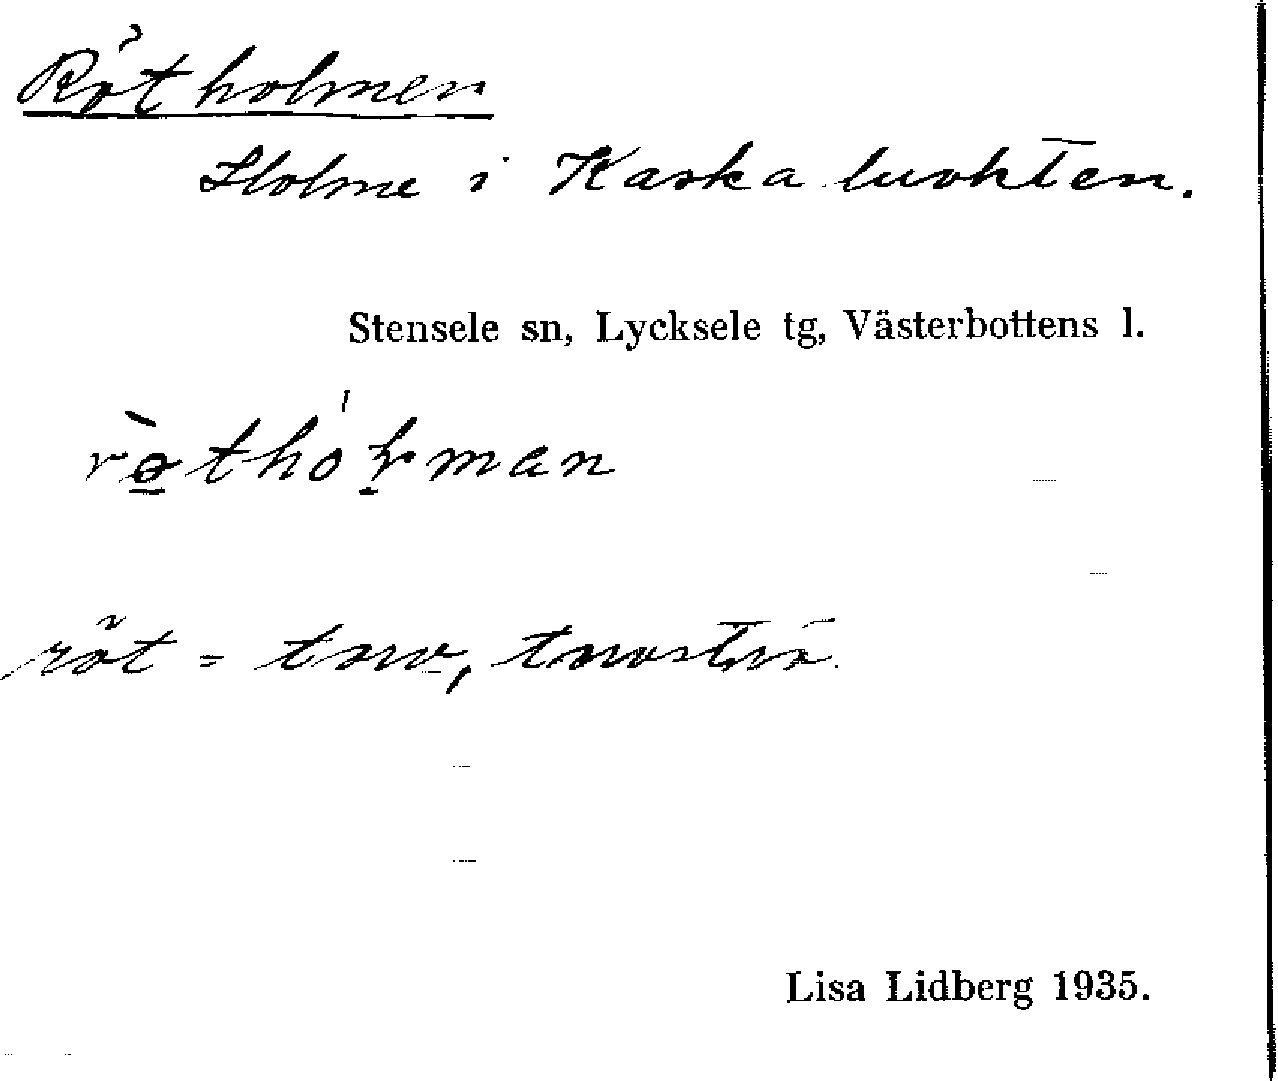 Rötholmen
Holme i Kaskaluokten.
Stensele sn, Lycksele tg, Västerbottens l.
röt = torv, torvströ.
Lisa Lidberg 1935.